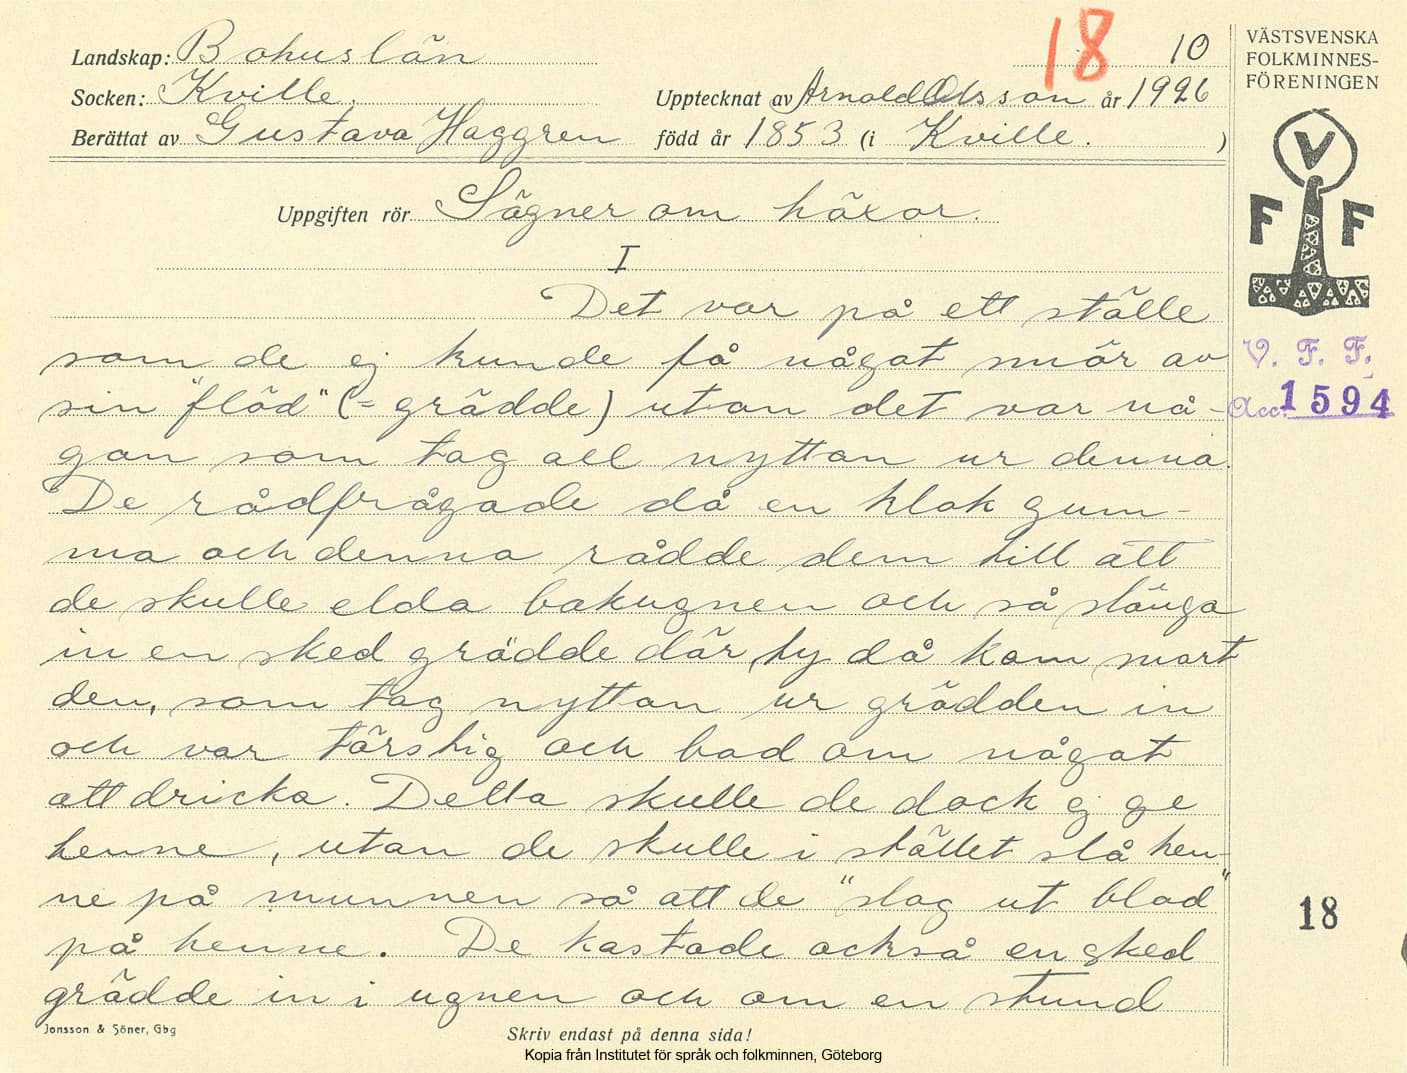 Landskap: Bohuslän
18 10
Socken: Kville.
Upptecknat av Arnold Olsson år 1926
Berättat av Gustava Haggren född år 1853 (i Kville. )
VÄSTSVENSKA
FOLKMINNES-
FÖRENINGEN
V
F F
Uppgiften rör Sägner om häxor.
I
Det var på ett ställe
som de ej kunde få något smör av
sin "flöd" (= grädde) utan det var nå-
gon som tog all nyttan ur denna.
De rådfrågade då en klok gum-
ma och denna rådde dem till att
de skulle elda bakugnen och så slänga
in en sked grädde där, ty då kom snart
den, som tog nyttan ur grädden in
och var törstig och bad om något
att dricka. Detta skulle de dock ej ge
henne, utan de skulle i stället slå hen-
ne på munnen så att de "slog ut blod"
på henne. De kastade också en sked
grädde in i ugnen och om en stund
V. F. F.
Acc. 1594
18
Jonsson & Söner, Gbg
Skriv endast på denna sida!
Kopia från Institutet för språk och folkminnen, Göteborg